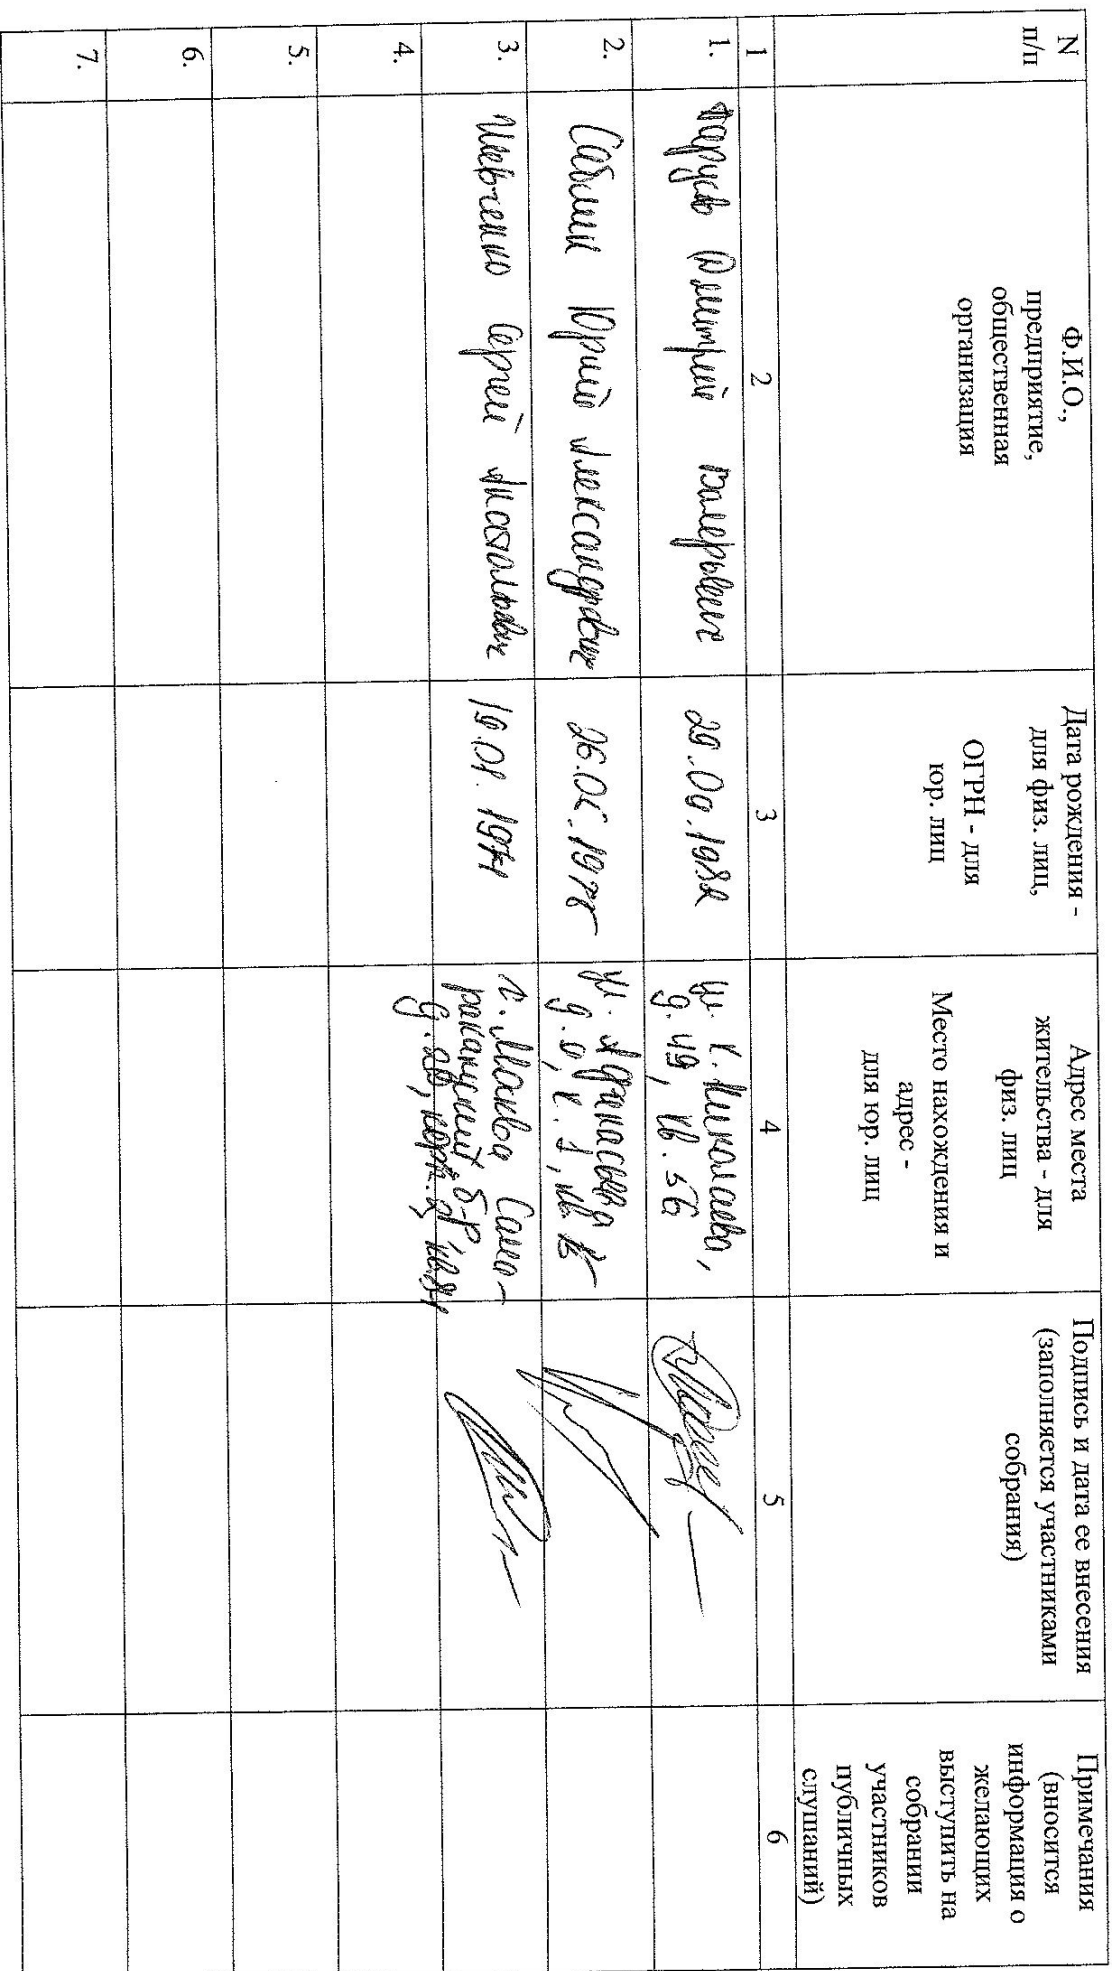 N
п/п
Ф.И.О.,
предприятие,
общественная
организация
Дата рождения -
для физ. лиц,
ОГРН - для
юр. лиц
Адрес места
жительства - для
физ. лиц
Место нахождения и
адрес -
для юр. лиц
Подпись и дата ее внесения
(заполняется участниками
собрания)
Примечания
(вносится
информация о
желающих
выступить на
собрании
участников
публичных
слушаний)
1 2 3 4 5 6
1. Парусов Дмитрий Валерьевич 29.09.1982 ул. К. Николаева,
д. 49, кв. 56
2. Саблин Юрий Александрович 26.06.1978 ул. Афанасьева
д. 9, к. 1, кв.
3. Шевченко Сергей Анатольевич 19.01.1974 г. Москва Само-
ркандский б-р
д. корп. 2,
4.
5.
6.
7.